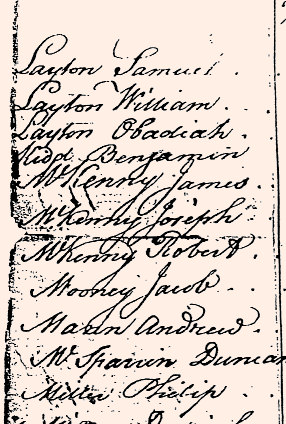 Layton Samuel
Layton William
Layton Obadiah
Kidd Benjamin
McKenny James
McKenny Joseph
McKenny Robert
Mooney Jacob
Andrew
Duncan
Miller Philip